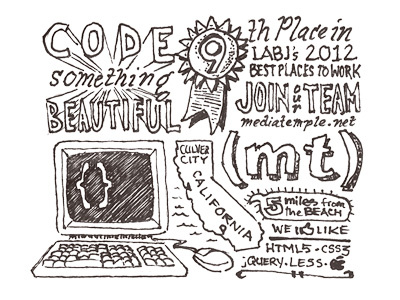 CODE
something
BEAUTIFUL
9
th Place in
LABJ's 2012
BEST PLACES TO WORK
JOIN our TEAM
mediatemple.net
(mt)
{}
CULVER
CITY
CALIFORNIA
5 miles from
the BEACH
WE LIKE
HTML5 · CSS3
jQUERY · LESS ·